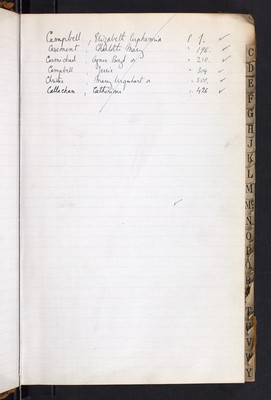 Campbell, Elizabeth Euphemia 1.
Casement, Charlotte Mary " 196.
Carmichael, Agnes Boyd " 210.
Campbell, Jessie " 304
Christie, Mary Urquhart "
Callachan, Catherine " 426
C
D
E
F
G
H
J
K
L
M
Mc
N
O
P
R
T
V
Y